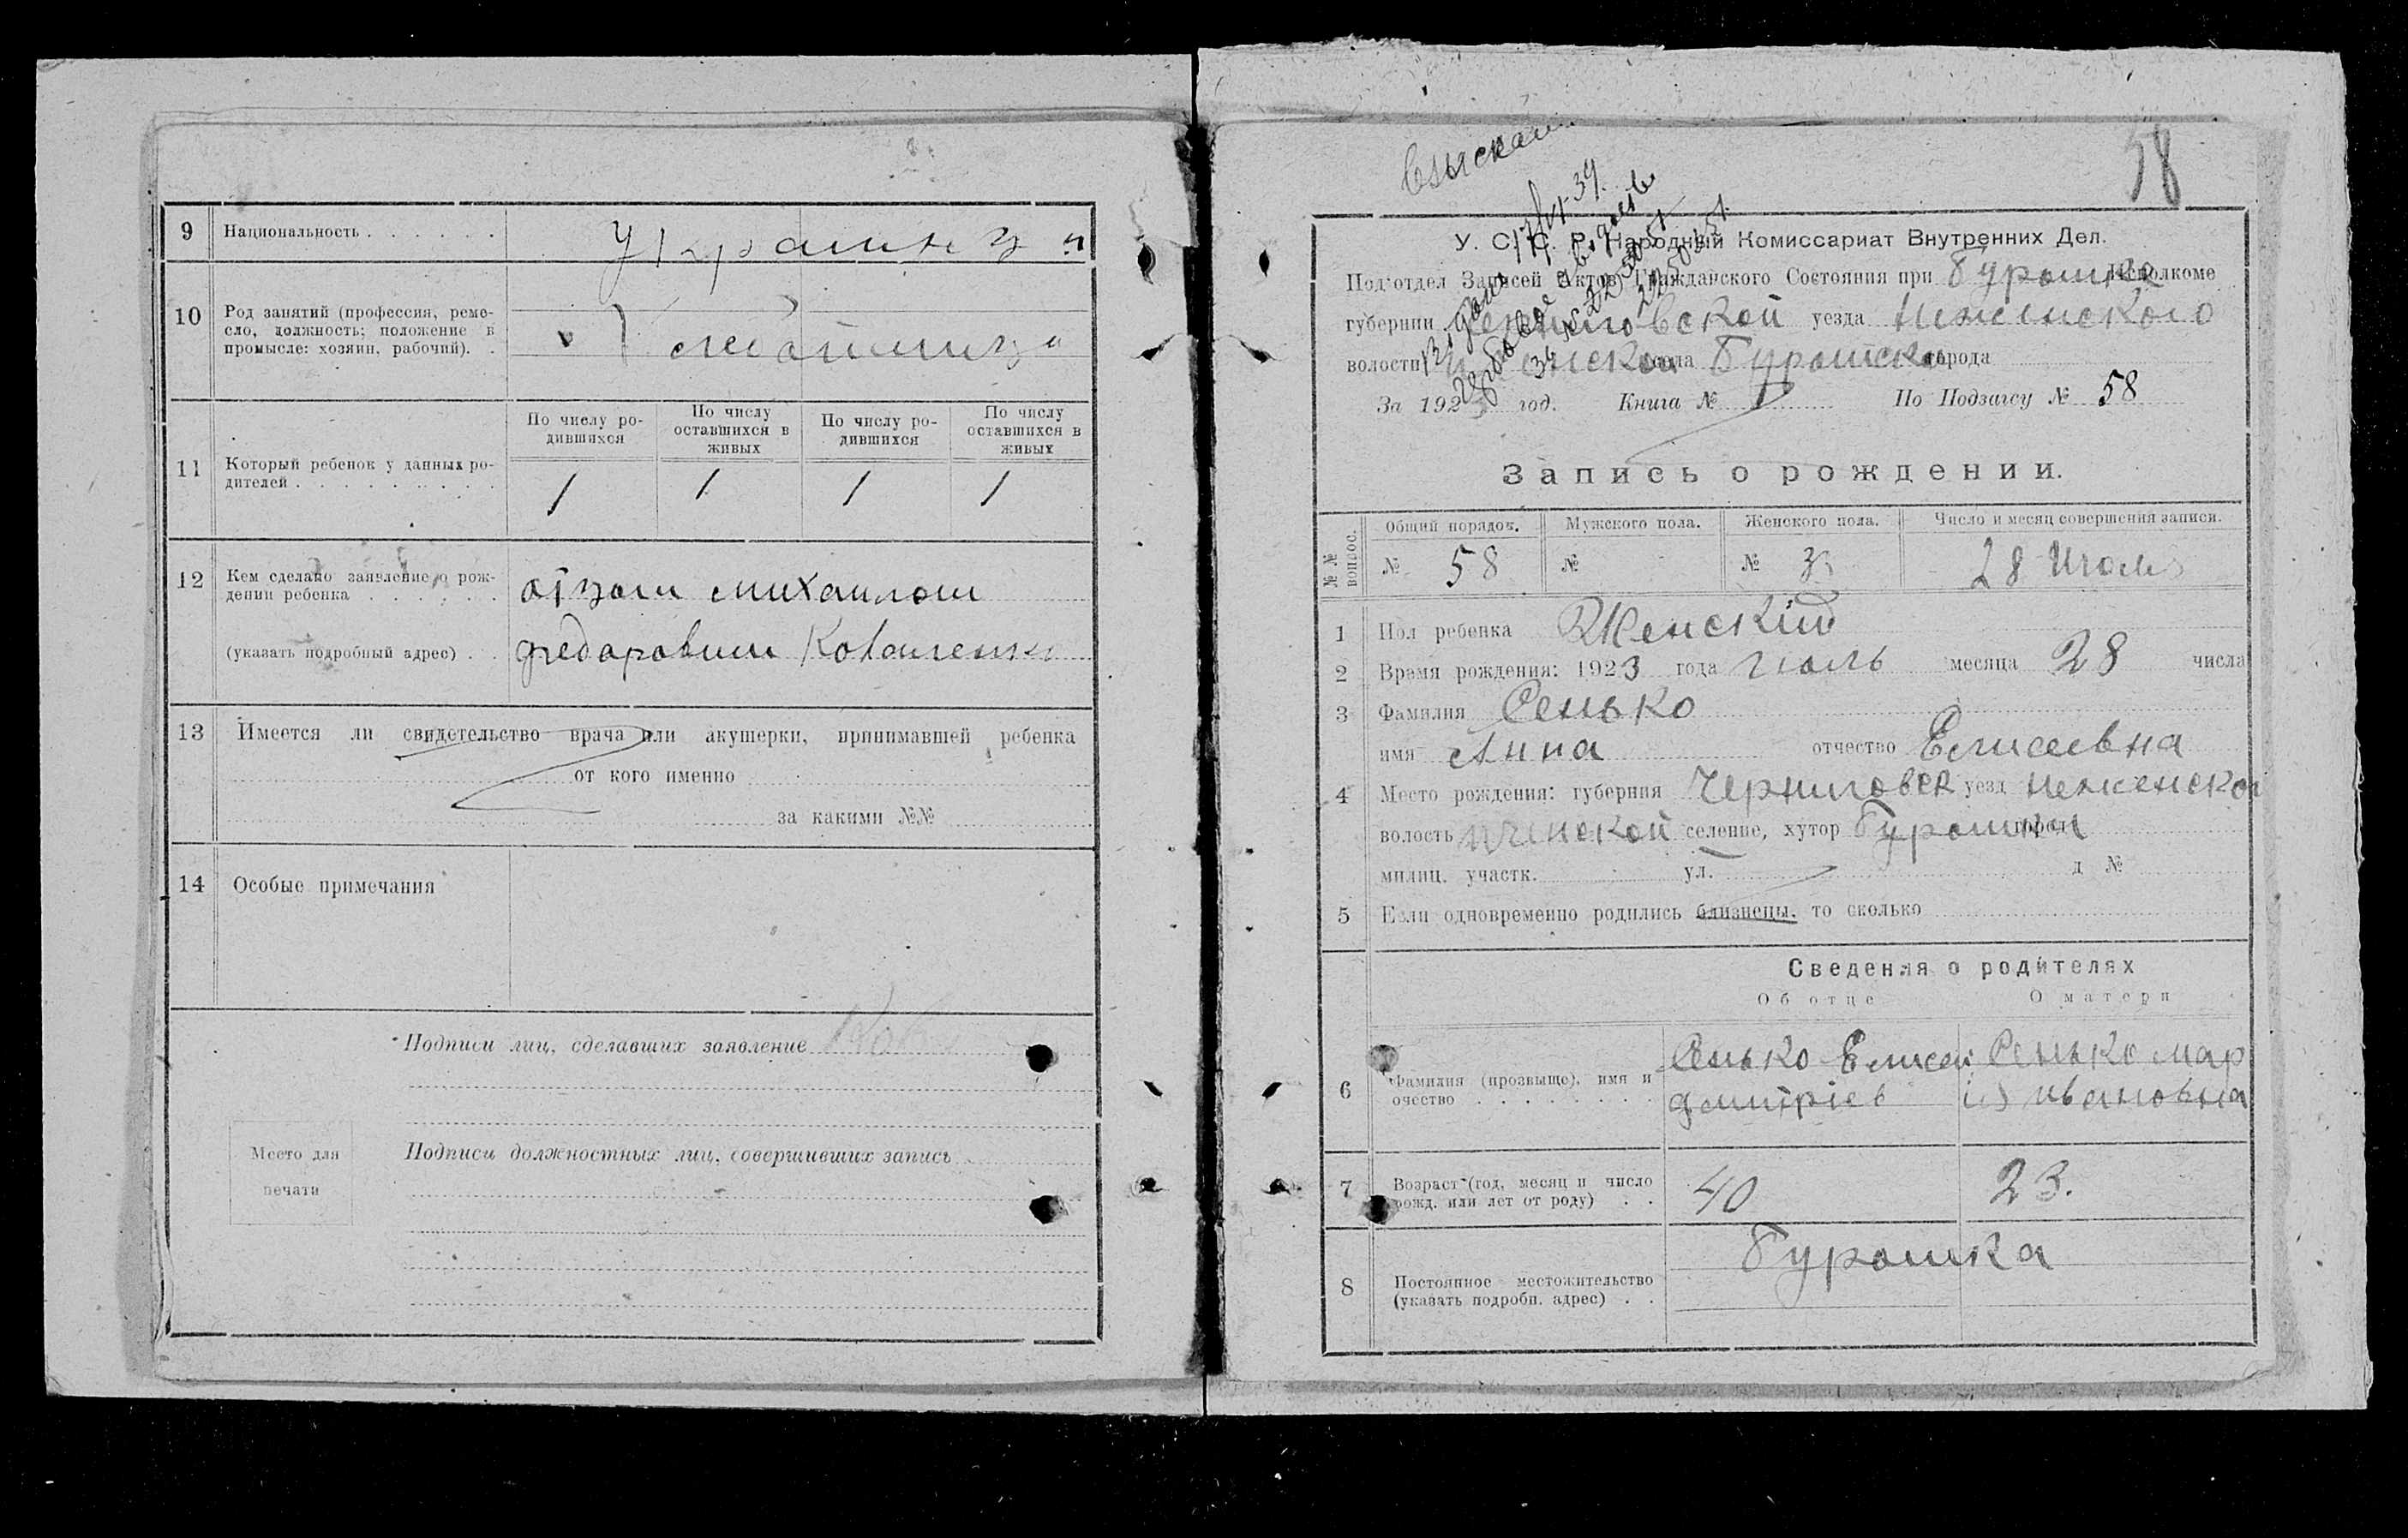 9 Национальность . . . . . . украинцы
10 Род занятий (профессия, реме-
сло, должность; положение в
промысле: хозяин, рабочий). .
11 Который ребенок у данных ро-
дителей . . . . . . . . . .
По числу ро-
дившихся
По числу
оставшихся в
живых
По числу ро-
дившихся
По числу
оставшихся в
живых
1 1 1 1
12 Кем сделано заявление о рож-
дении ребенка . . . . . . отцом михаилом
(указать подробный адрес) . . федаравич
13 Имеется ли свидетельство врача или акушерки, принимавшей ребенка
от кого именно
за какими №№
14 Особые примечания
Подписи лиц, сделавших заявление
Место для
печати
Подписи должностных лиц, совершивших запись
58
У. С. С. Р. Народный Комиссариат Внутренних Дел.
Под'отдел Записей Актов Гражданского Состояния при Исполкоме
губернии уезда Неженского
волости села города
За 192 год. Книга № По Подзагсу № 58
Запись о рождении.
№ №
вопрос.
Общий порядок. Мужского пола. Женского пола. Число и месяц совершения записи.
№ 58 № № 28 Июль
1 Пол ребенка Женский
2 Время рождения: 1923 года июль месяца 28 числа
3 Фамилия Сенько
имя Анна отчество Елисеевна
4 Место рождения: губерния Черниговск уезд неженской
волость ичнской селение, хутор город
милиц. участк. ул. д №
5 Если одновременно родились близнецы, то сколько
Сведения о родителях
Об отце О матери
6 Фамилия (прозвыще), имя и
очество . . . . . . . .
Сенько Елисей
дмитріев
Сенько мар
ія ивановна
7 Возраст (год, месяц и число
рожд. или лет от роду) . .
40 23.
8 Постоянное местожительство
(указать подробн. адрес) . .
Буромка